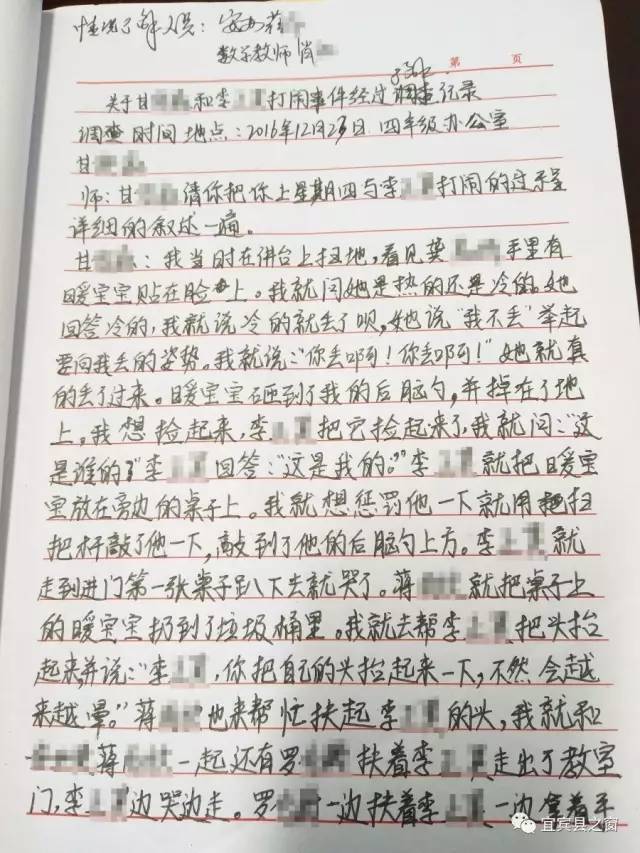 情况了解人员：安
数学教师 肖
第 页
关于甘 和李 打闹事件经过调查记录
调查时间地点：2016年12月23日 四年级办公室
甘
师：甘 请你把你上星期四与李 打闹的过程
详细的叙述一遍。
甘 ：我当时在讲台上扫地，看见龚 手里有
暖宝宝贴在脸上。我就问她是热的还是冷的。她
回答冷的，我就说冷的就丢了呗，她说“我不丢”举起
要向我丢的姿势。我就说：“你丢啊！你丢啊！”她就真
的丢了过来。暖宝宝砸到了我的后脑勺，并掉在了地
上，我想捡起来，李 把它捡起来了，我就问：“这
是谁的？”李 回答：“这是我的。”李 就把暖宝
宝放在旁边的桌子上。我就想惩罚他一下就用扫
把杆敲了他一下，敲到了他的后脑勺上方。李 就
走到进门第一张桌子趴下去就哭了。蒋 就把桌子上
的暖宝宝扔到了垃圾桶里。我就去帮李 把头抬
起来，并说：“李 ，你把自己的头抬起来一下，不然会越
来越晕。”蒋 也来帮忙扶起李 的头，我就和
蒋 一起还有罗 扶着李 走出了教室
门，李 边哭边走。罗 一边扶着李 一边拿着手
宜宾县之窗